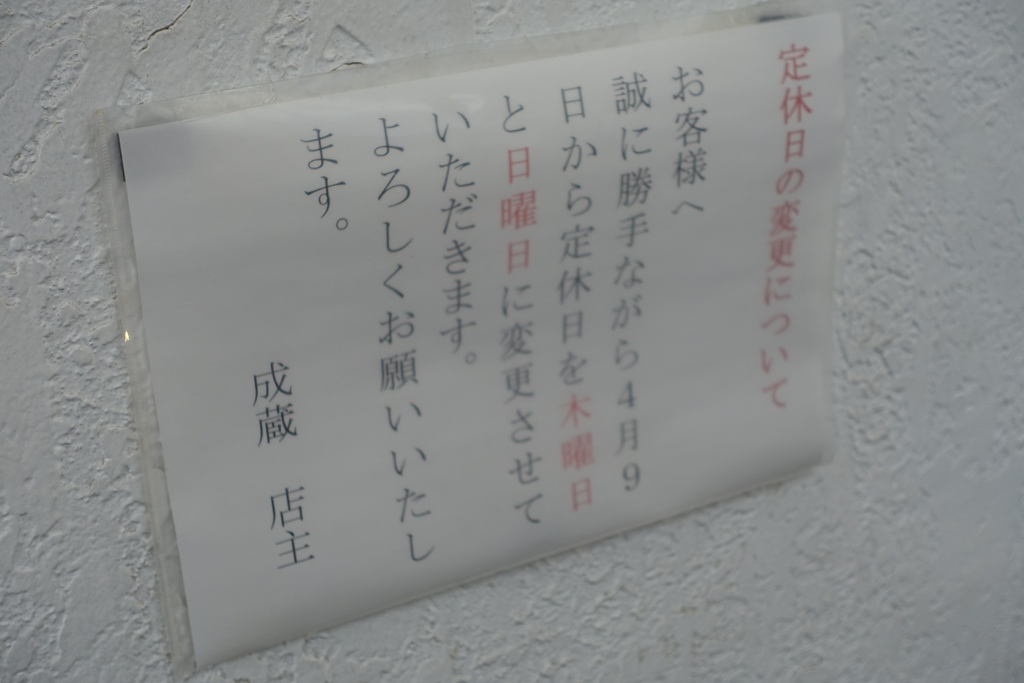 定休日の変更について
お客様へ
誠に勝手ながら4月9
日から定休日を木曜日
と日曜日に変更させて
いただきます。
よろしくお願いいたし
ます。
成蔵　店主